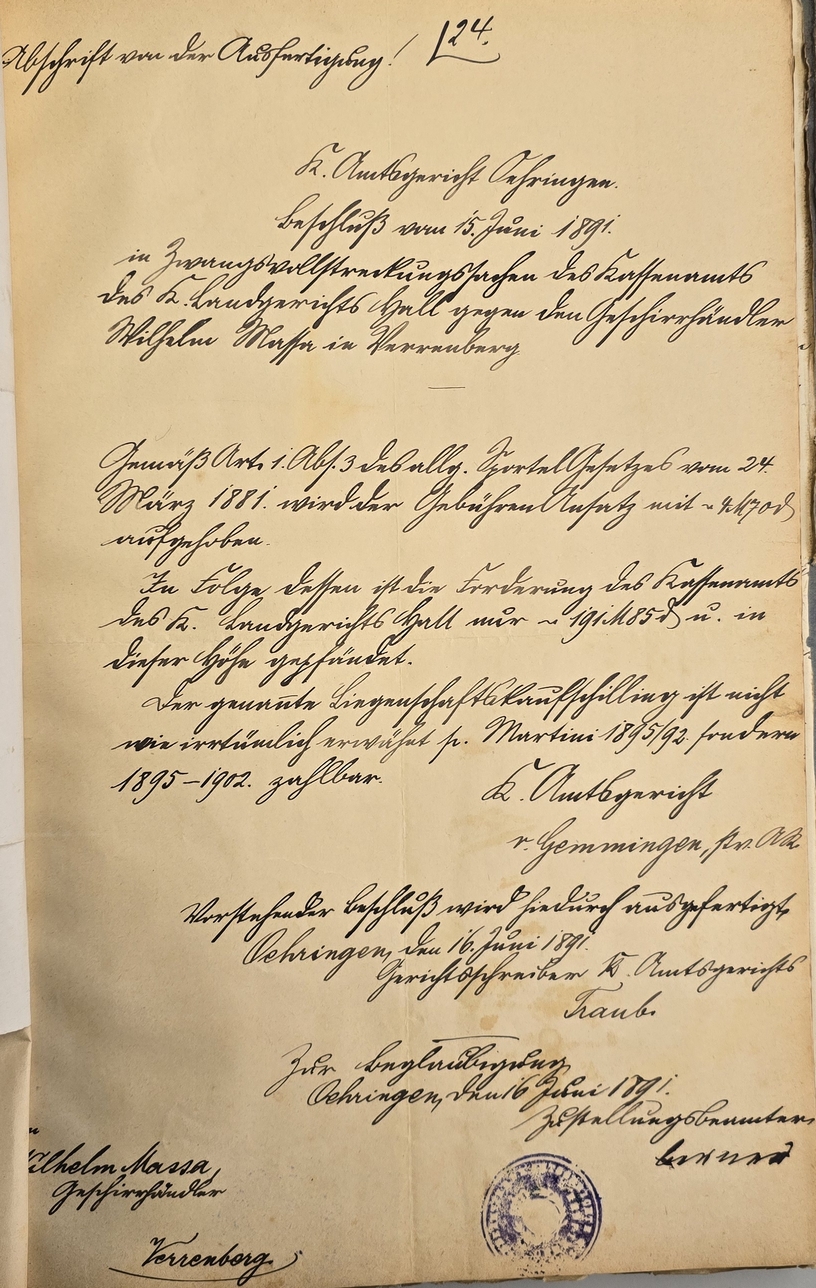 Abschrift von der Ausfertigung! 24.
K. Amtsgericht Oehringen.
Beschluß vom 15. Juni 1891.
in Zwangsvollstreckungssachen des Kassenamts
des K. Landgerichts Hall gegen den Geschirrhändler
Wilhelm Massa in Verrenberg
Gemäß Art. 1. Abs. 3 des allg. Sportel Gesetzes vom 24.
März 1881. wird der Gebühren Ansatz mit 4 M 70 d
aufgehoben.
In Folge dessen ist die Forderung des Kassenamts
des K. Landgerichts Hall nur 191 M 85 d u. in
dieser Höhe gepfändet.
Der genannte Liegenschaftskaufschilling ist nicht
wie irrtümlich erwähnt p. Martini 1895/92. sondern
1895-1902. zahlbar.
K. Amtsgericht
v. Gemmingen, stv. AR
Vorstehender Beschluß wird hiedurch ausgefertigt,
Oehringen, den 16. Juni 1891.
Gerichtsschreiber K. Amtsgerichts
Traub.
Zur Beglaubigung
Oehringen, den 16 Juni 1891.
Zustellungsbeamter
Wilhelm Massa,
Geschirrhändler
Verrenberg